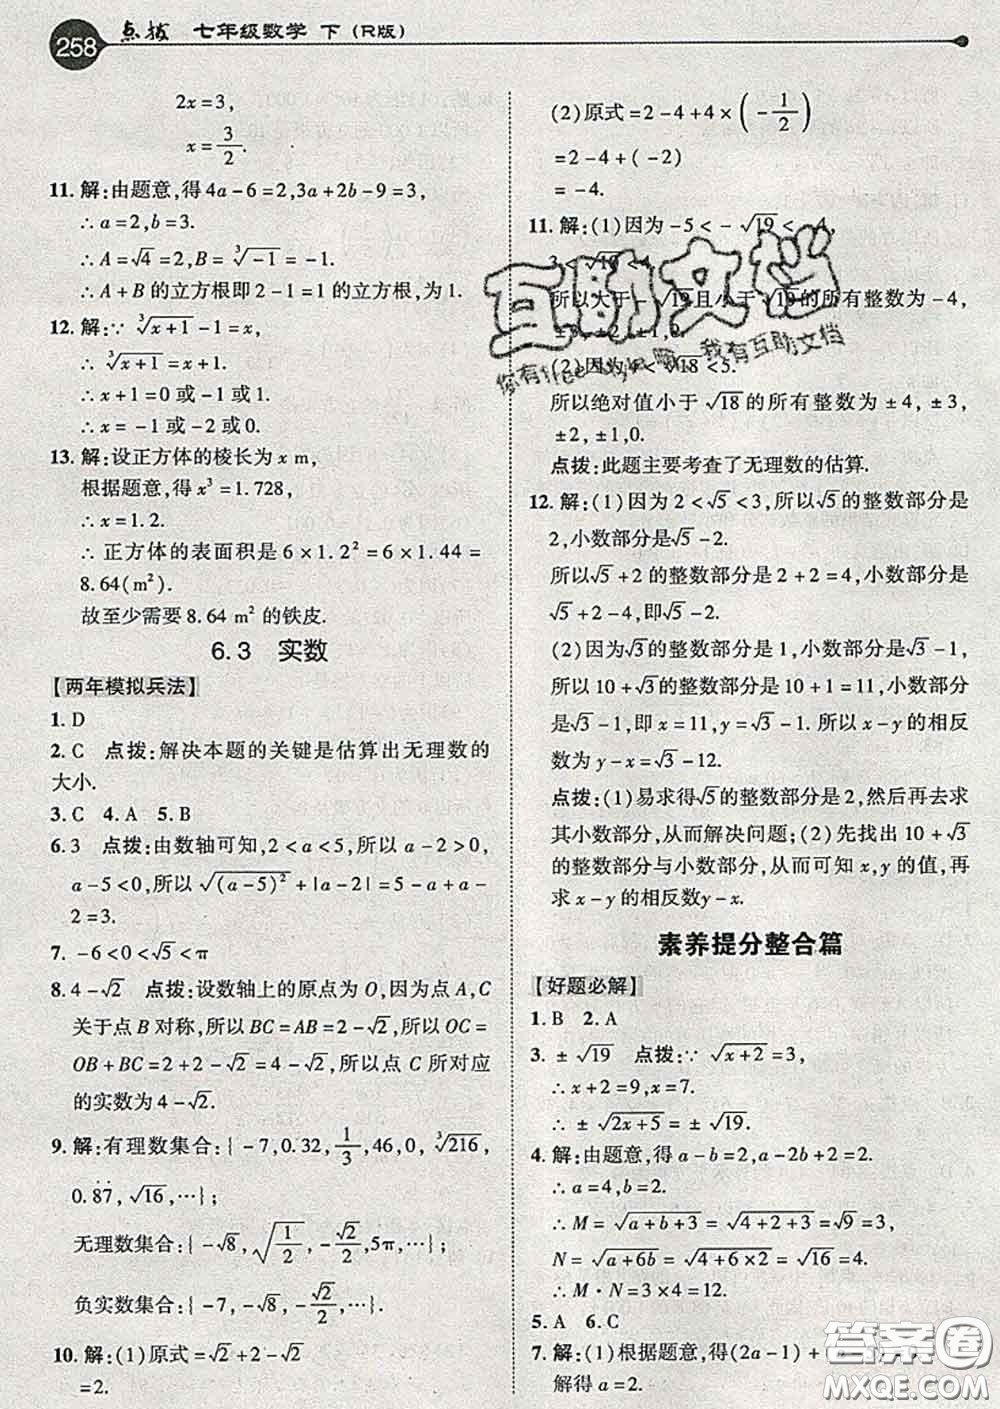 258 点拨 七年级数学 下（R版）
2x=3,
x=3/2.
11. 解:由题意,得4a-6=2,3a+2b-9=3,
∴a=2,b=3.
∴A=√4=2,B=∛-1=-1.
∴A+B的立方根即2-1=1的立方根,为1.
12. 解:∵∛x+1-1=x,
∴∛x+1=x+1.
∴x+1=0或-1或1.
∴x=-1或-2或0.
13. 解:设正方体的棱长为x m,
根据题意,得x³=1.728,
∴x=1.2.
∴正方体的表面积是6×1.2²=6×1.44=
8.64(m²).
故至少需要8.64 m²的铁皮.
6.3 实数
【两年模拟兵法】
1. D
2. C 点拨:解决本题的关键是估算出无理数的
大小.
3. C 4. A 5. B
6. 3 点拨:由数轴可知,2<a<5,所以a-2>0,
a-5<0,所以√(a-5)²+|a-2|=5-a+a-
2=3.
7. -6<0<√5<π
8. 4-√2 点拨:设数轴上的原点为O,因为点A,C
关于点B对称,所以BC=AB=2-√2,所以OC=
OB+BC=2+2-√2=4-√2,所以点C所对应
的实数为4-√2.
9. 解:有理数集合:{-7,0.32,1/3,46,0,∛216,
0.8̇7̇,√16,…};
无理数集合:{-√8,√1/2,-√2/2,5π,…};
负实数集合:{-7,-√8,-√2/2,…}.
10. 解:(1)原式=√2+2-√2
=2.
(2)原式=2-4+4×(-1/2)
=2-4+(-2)
=-4.
11. 解:(1)因为-5<-√19<-4,
3<√10<4
所以大于-√19且小于√10的所有整数为-4,
±3,±2,±1,0
(2)因为4<√18<5.
所以绝对值小于√18的所有整数为±4,±3,
±2,±1,0.
点拨:此题主要考查了无理数的估算.
12. 解:(1)因为2<√5<3,所以√5的整数部分是
2,小数部分是√5-2.
所以√5+2的整数部分是2+2=4,小数部分是
√5+2-4,即√5-2.
(2)因为√3的整数部分是1,小数部分是√3-1,
所以10+√3的整数部分是10+1=11,小数部分是
√3-1,即x=11,y=√3-1.所以x-y的相反
数为y-x=√3-12.
点拨:(1)易求得√5的整数部分是2,然后再去求
其小数部分,从而解决问题;(2)先找出10+√3
的整数部分与小数部分,从而可知x,y的值,再
求x-y的相反数y-x.
素养提分整合篇
【好题必解】
1. B 2. A
3. ±√19 点拨:∵√x+2=3,
∴x+2=9,x=7.
∴±√2x+5=±√19.
4. 解:由题意,得a-b=2,a-2b+2=2.
∴a=4,b=2.
∴M=√a+b+3=√4+2+3=√9=3,
N=√a+6b=√4+6×2=√16=4.
∴M·N=3×4=12.
5. A 6. C
7. 解:(1)根据题意,得(2a-1)+
解得a=2.
互助文档
我有互助文档
答案圈
MXQE.COM